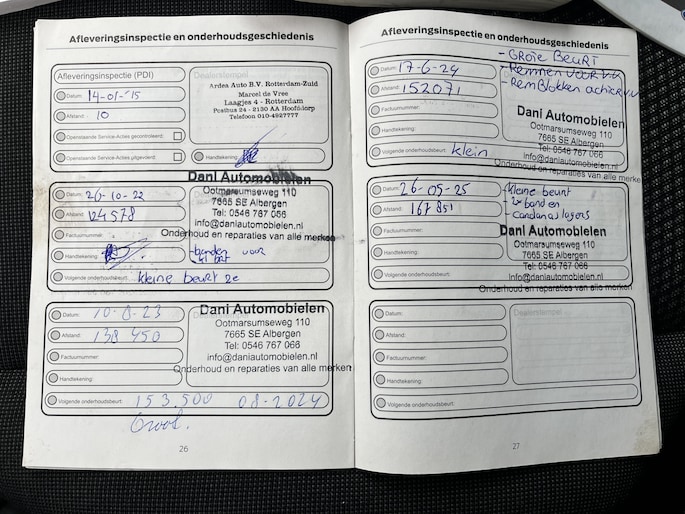 Afleveringsinspectie en onderhoudsgeschiedenis
Afleveringsinspectie (PDI)
Datum: 14-01-'15
Afstand: 10
Openstaande Service-Acties gecontroleerd:
Openstaande Service-Acties uitgevoerd:
Dealerstempel
Ardea Auto B.V. Rotterdam-Zuid
Marcel de Vree
Laagjes 4 - Rotterdam
Postbus 24 - 2130 AA Hoofddorp
Telefoon 010-4927777
Handtekening:
Datum: 26-10-22
Afstand: 124578
Factuurnummer:
Handtekening:
Volgende onderhoudsbeurt: kleine beurt 2e
Dani Automobielen
Ootmarsumseweg 110
7665 SE Albergen
Tel: 0546 767 066
info@daniautomobielen.nl
Onderhoud en reparaties van alle merken
banden voor
Datum: 10-8-23
Afstand: 138 450
Factuurnummer:
Handtekening:
Volgende onderhoudsbeurt: 153.500 08-2024
Groot.
Dani Automobielen
Ootmarsumseweg 110
7665 SE Albergen
Tel: 0546 767 066
info@daniautomobielen.nl
Onderhoud en reparaties van alle merken
26
Afleveringsinspectie en onderhoudsgeschiedenis
Datum: 17-6-24
Afstand: 152071
Factuurnummer:
Handtekening:
Volgende onderhoudsbeurt: klein
- GROTE BEURT
- Remmen voor
- Remblokken achter
Dani Automobielen
Ootmarsumseweg 110
7665 SE Albergen
Tel: 0546 767 066
info@daniautomobielen.nl
Onderhoud en reparaties van alle merken
Datum: 26-05-25
Afstand: 167 851
Factuurnummer:
Handtekening:
Volgende onderhoudsbeurt:
kleine beurt
- 2x banden
Dani Automobielen
Ootmarsumseweg 110
7665 SE Albergen
Tel: 0546 767 066
info@daniautomobielen.nl
Onderhoud en reparaties van alle merken
Datum:
Afstand:
Factuurnummer:
Handtekening:
Volgende onderhoudsbeurt:
Dealerstempel
27